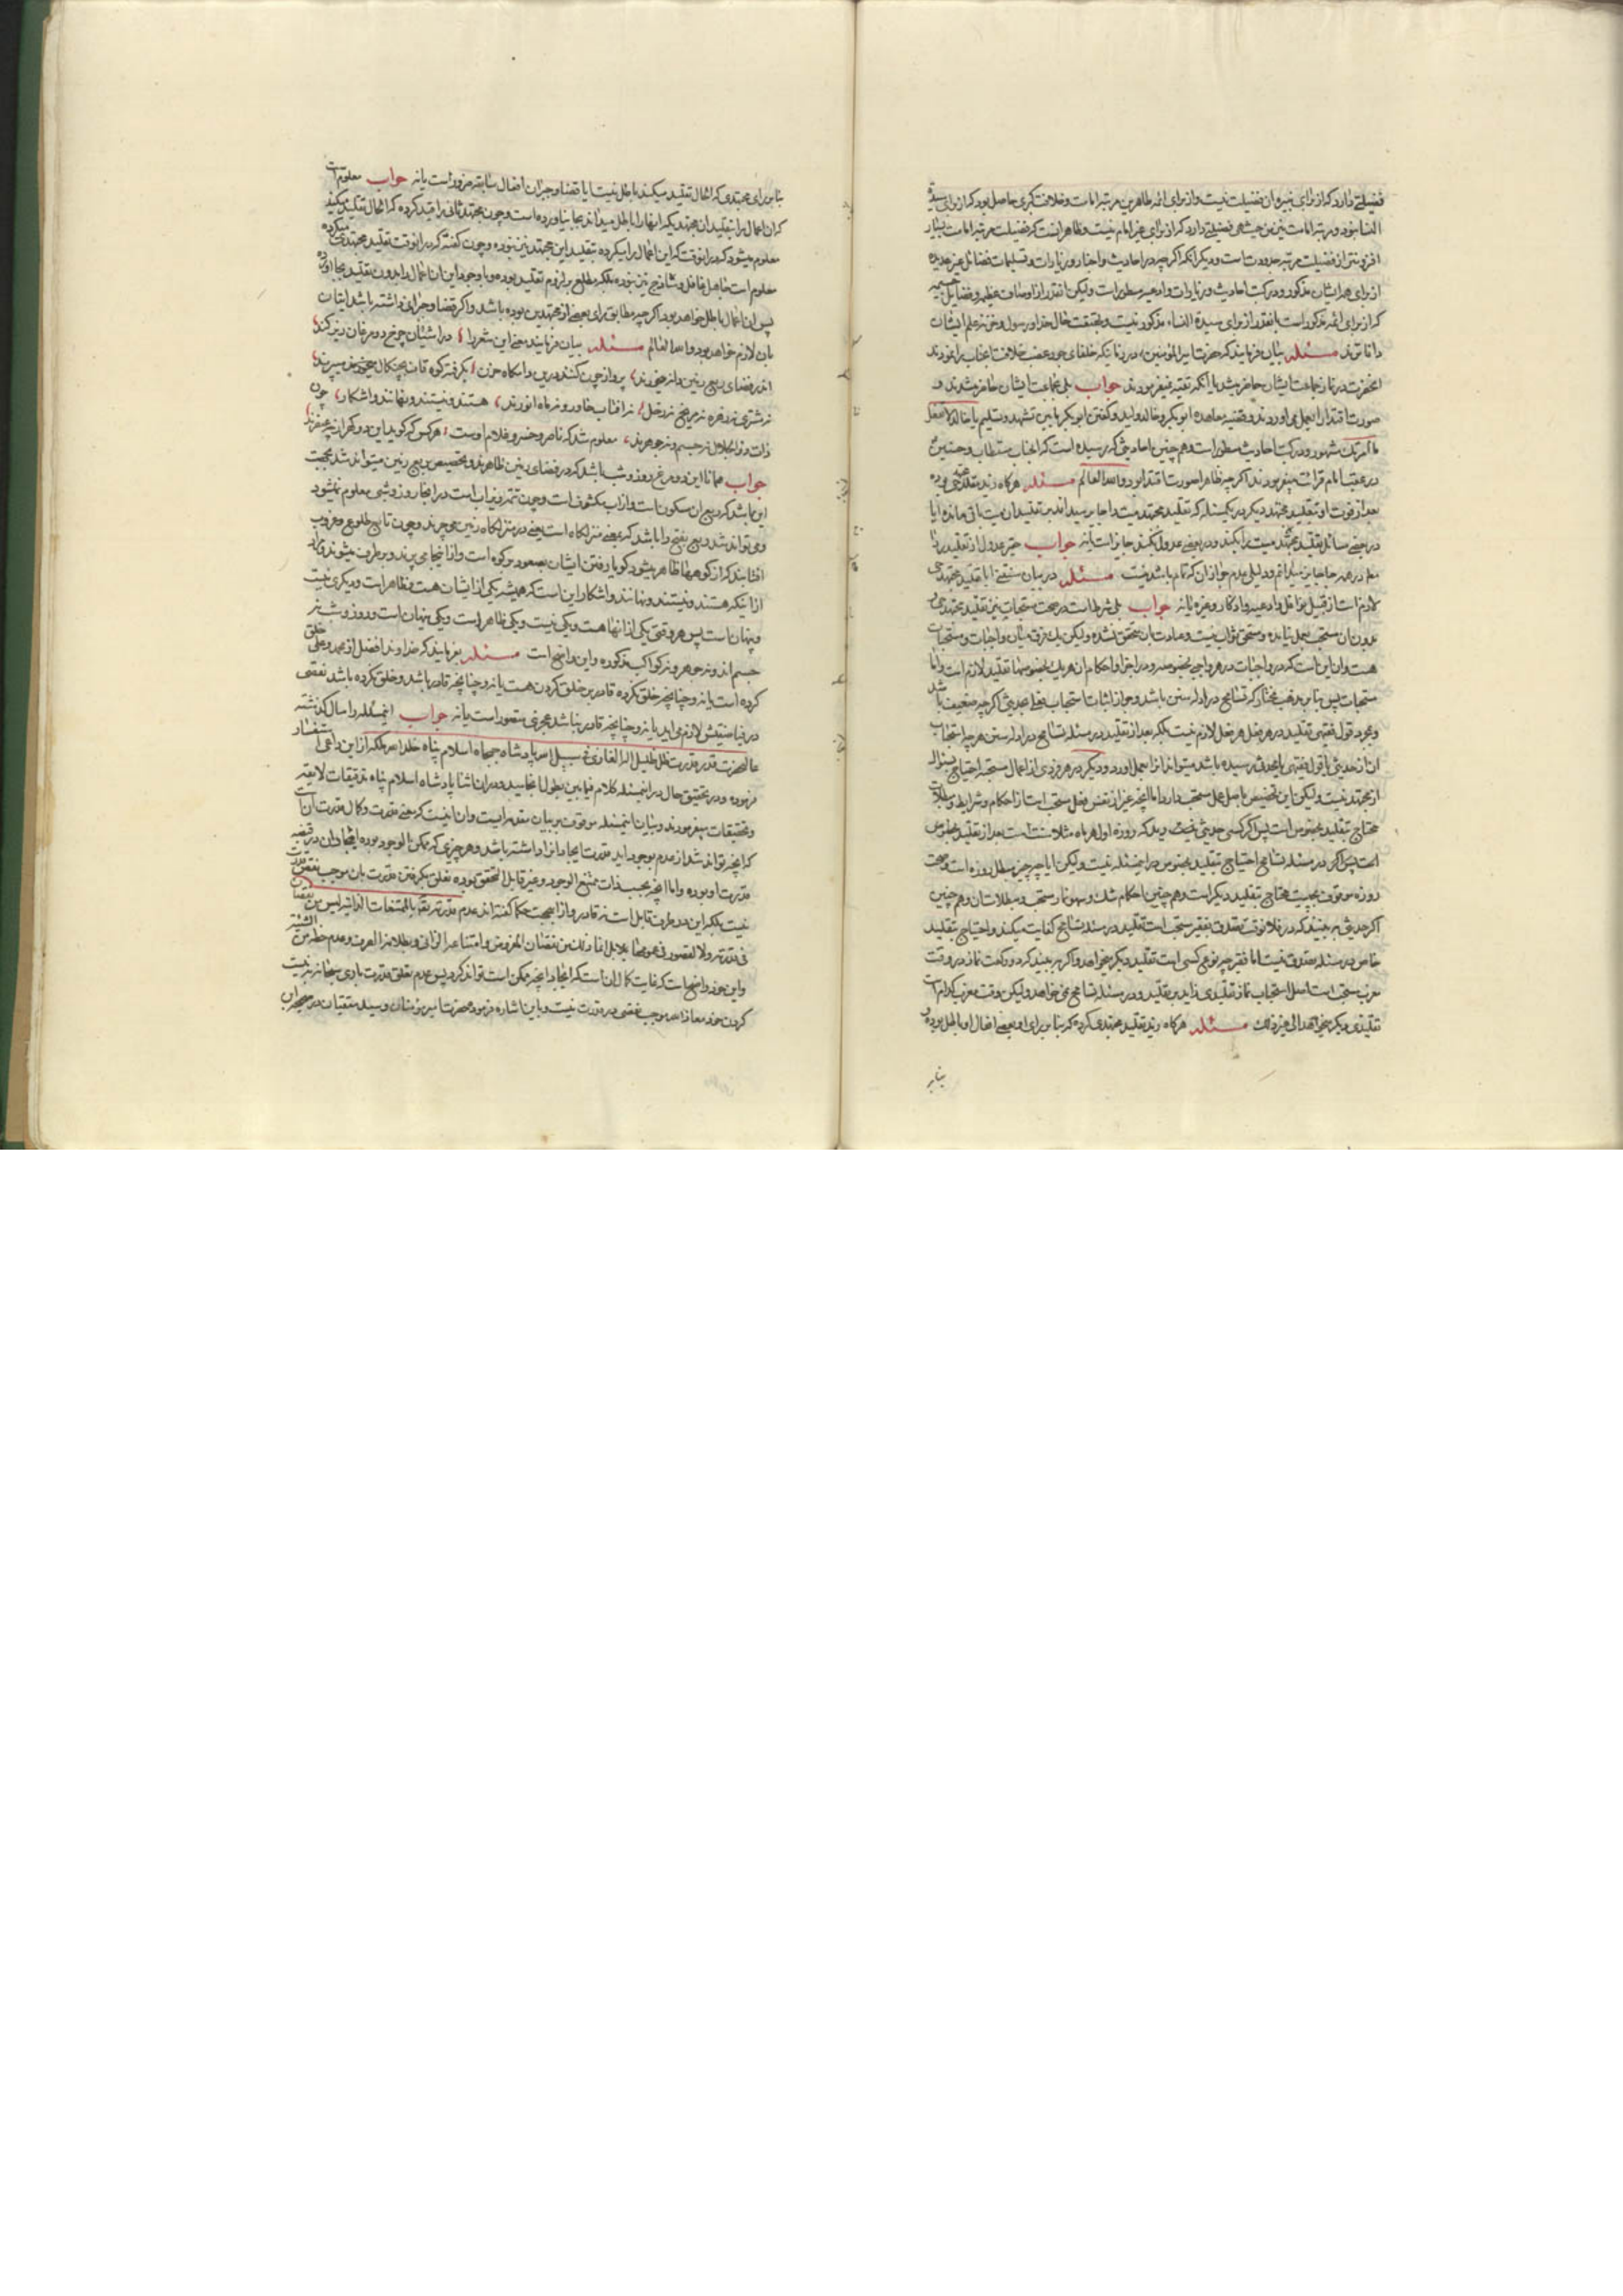 فضیلتی دارد که از برای غیر ان فضیلت نیست و از برای ائمه طاهرین مرتبه امامت و خلافت کبری حاصل بود که از برای سیدة
النسا نبود و مرتبه امامت نیز من حیث هی فضیلتی دارد که از برای غیر امام نیست و ظاهر اینست که فضیلت مرتبه امامت بسیار
افزونتر از فضیلت مرتبه است و دیگر انکه اگر چه در احادیث و اخبار و زیارات و تسلیمات فضائل غیر عدیده
از برای همه ایشان مذکور و در کتب احادیث و زیارات و ادعیه مسطور است و لیکن انقدر از اوصاف عظیمه و فضایل
که از برای ائمه مذکور است انقدر از برای سیدة النساء مذکور نیست و بحقیقت حال خدا و رسول و ایشان
دانا ترند مسئله بیان فرمایند که حضرت امیر المؤمنین در زمانیکه خلفای جور غصب خلافت انجناب را نمودند
انحضرت در نماز جماعت ایشان حاضر میشد یا انکه تقیه نمیفرمودند جواب بلی بجماعت ایشان حاضر میشدند و
صورت اقتدا را بعمل می اوردند و قضیه معاهده ابوبکر و خالد ولید و گفتن ابوبکر ما بین تشهد و تسلیم یا خالد لا تفعل
ما امرتک مشهور و در کتب احادیث مسطور است و هم چنین احادیثی که رسیده است که انجناب مستطاب و حسنین
در عقب امام قرائت میفرمودند اگر چه ظاهرا صورت اقتدا بود و الله العالم مسئله هرگاه زید مقلد مجتهدی بوده
بعد از فوت او بتقلید مجتهد دیگر در یکمسئله که تقلید مجتهد میت را جایز میداند بر تقلید ان میت باقی مانده ایا
در بعضی مسائل تقلید مجتهد میت را بکند و در بعضی عدول بکند جایز است یا نه جواب حقیر عدول از تقلید را
در همه جا جایز میدانم و دلیلی بعدم جواز ان که تمام باشد نیست مسئله در بیان سنتی ایا تقلید مجتهدی
لازم است از قبیل نوافل و ادعیه و اذکار و غیره یا نه جواب بلی شرط است در صحت مستحبات نیز تقلید مجتهدی و
بدون ان مستحب بعمل نیامده و مستحق ثواب نیست و عبادت بان متحقق نشده و لیکن یک فرق میان واجبات و مستحبات
هست و ان این است که در واجبات در هر واجبی بخصوصه و در اجزا و احکام ان هر یک بخصوصها تقلید لازم است و اما
مستحبات پس بنابر مذهب مختار که تسامح در ادله سنن باشد و جواز اثبات استحباب فعلی بحدیثی اگر چه ضعیف باشد
و بمجرد قول فقیهی تقلید در هر فعل هر فعل لازم نیست بلکه بعد از تقلید در مسئله تسامح در ادله سنن هر چه استحباب
ان از حدیثی یا قول فقیهی یا محدثی رسیده باشد میتواند انرا بعمل اورد و دیگر در هر فردی از اعمال مستحبه احتیاج بسؤال
از مجتهد نیست و لیکن این تخصیص باصل عمل مستحب دارد اما انچه غیر از نفس فعل مستحب است از احکام و شرایط و مبطلات
محتاج بتقلید بخصوص است پس اگر کسی حدیثی دید که روزه اول هر ماه مثلا سنت است بعد از تقلید بخصوص
است پس اگر در مسئله تسامح احتیاج بتقلید بخصوص در اینمسئله نیست و لیکن ایا چه چیز مبطل روزه است و صحت
روزه موقوف بچیست محتاج بتقلید دیگر است و هم چنین احکام شک و سهو نماز مستحب و مبطلات ان و هم چنین
اگر حدیثی ببیند که در فلانوقت تصدق بفقیر مستحب است تقلید در مسئله تسامح کفایت میکند و احتیاج بتقلید
خاص در مسئله تصدق نیست اما فقیر چه نوع کسی است تقلید دیگر میخواهد و اگر ببیند که دو رکعت نماز در وقت
مغرب مستحب است اصل استحباب نماز تقلیدی زاید بر تقلید در مسئله تسامح نمی خواهد و لیکن وقت مغرب کدام است
تقلیدی دیگر میخواهد الی غیر ذلک مسئله هرگاه زید تقلید مجتهدی کرده که بنا برای او بعضی افعال او باطل بوده و
بنابر
بنابر رای مجتهدی که الحال تقلید میکند باطل نیست ایا قضا و جبران افعال سابقه ضرور است یا نه جواب معلوم است
که ان اعمال را بتقلید ان مجتهد دیگر که انها را باطل میداند بجا نیاورده است و چون مجتهد ثانی را قید کرده که الحال تقلید میکند
معلوم میشود که در انوقت که این اعمال را میکرده بتقلید این مجتهد نیز نبوده و چون گفته که در انوقت تقلید مجتهدی میکرده
معلوم است جاهل غافل و ساذج نیز نبوده بلکه مطلع بر لزوم تقلید بوده و با وجود این ان اعمال را بدون تقلید بجا اورده
پس ان اعمال باطل خواهد بود اگر چه مطابق رای بعضی از مجتهدین بوده باشد و اگر قضا و جبرانی داشته باشد اتیان
بان لازم خواهد بود و الله العالم مسئله بیان فرمایند معنی این شعر را در اشیان چرخ دو مرغان زیرکند
اندر فضای ربع زمین دانه میخورند پرواز چون کنند درین دامگاه حزن بگرفته کوه قاف بچنگال میپرند
نه مشتری نه زهره نه مریخ نه زحل نه افتاب خاور و نه ماه انورند هستند و نیستند و نهانند و اشکار چون
ذات ذوالجلال نه جسم و نه جوهرند معلوم شد که ناصر و خسرو غلام اوست هر کس که گوید این دو گهر از چه عنصرند
جواب همانا این دو مرغ روز و شب باشد که در فضای زمین ظاهرند و تخصیص بربع زمین میتواند شد بجهت
این باشد که ربع ان سکون است و از اب مکشوف است و چون تتمه در زیر اب است در انجا روز و شبی معلوم نمیشود
و می تواند شد ربع بفتح را باشد که بمعنی منزلگاه است یعنی در منزلگاه زمین می چرند و چون تابع طلوع و غروب
افتابند که از کوهها ظاهر میشود گویا رفتن ایشان بصعود بر کوه است و از انجا می پرند و برطرف میشوند و مراد
از اینکه هستند و نیستند و نهانند و اشکار این است که همیشه یکی از ایشان هست و ظاهر است و دیگری نیست
و پنهان است پس هر وقتی یکی از انها هست و یکی نیست و یکی ظاهر است و یکی پنهان است و روز و شب نه
جسم اند و نه جوهر و نه کواکب مذکوره و این واضح است مسئله بفرمایند که خداوند افضل از محمد و علی خلق
کرده است یا نه و چنانچه خلق نکرده قادر بر خلق کردن هست یا نه و چنانچه قادر باشد و خلق نکرده باشد نقصی
در فیاضیتش لازم می اید یا نه و چنانچه قادر نباشد عجزی متصور است یا نه جواب اینمسئله را سال گذشته
عالیحضرت قدر قدرت ظل ظلیل اله الغازی فی سبیل الله پادشاه جمجاه اسلام پناه خلد الله ملکه از این داعی استفسار
فرموده و در تحقیق حال در اینمسئله کلام فیمابین بطول انجامید و در ان اثنا پادشاه اسلام پناه تدقیقات لایقه
و تحقیقات میفرمودند و بیان اینمسئله موقوف بر بیان مقدمه ایست و ان اینست که معنی قدرت و کمال قدرت ان است
که انچه تواند شد از عدم بوجود اید قدرت ایجاد انرا داشته باشد و هر چیزی که ممکن الوجود بوده ایجاد ان در قبضه
قدرت او بوده و اما انچه بحسب ذات ممتنع الوجود و غیر قابل التحقق بوده تعلق نگرفتن قدرت بان موجب نقص قدرت
نیست بلکه این در طرف قابل است نه قادر و از اینجهت حکما گفته اند عدم قدرته تعالی بالممتنعات الذاتیه لیس من نقصان
فی قدرته و لا لقصور فی عموم بل انما ذلک من نقصان المفروض و امتناعه الذاتی و بطلانه الصرف و عدم حظه من الشیئیه
و این خود واضح است که غایت کمال ان است که ایجاد انچه ممکن است تواند کرد پس عدم تعلق قدرت باری سبحانه نیست
کردن خود معاذ الله موجب نقصی در قدرت نیست و باین اشاره فرمود حضرت امیر مومنان و سید متقیان در